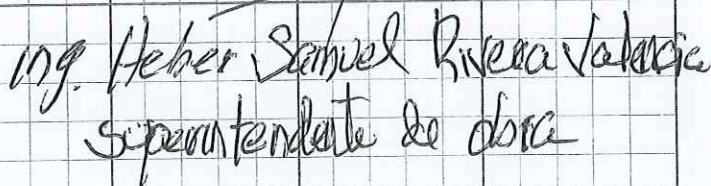 ing. Heber Samuel Rivera Valencia
superintendente de obra